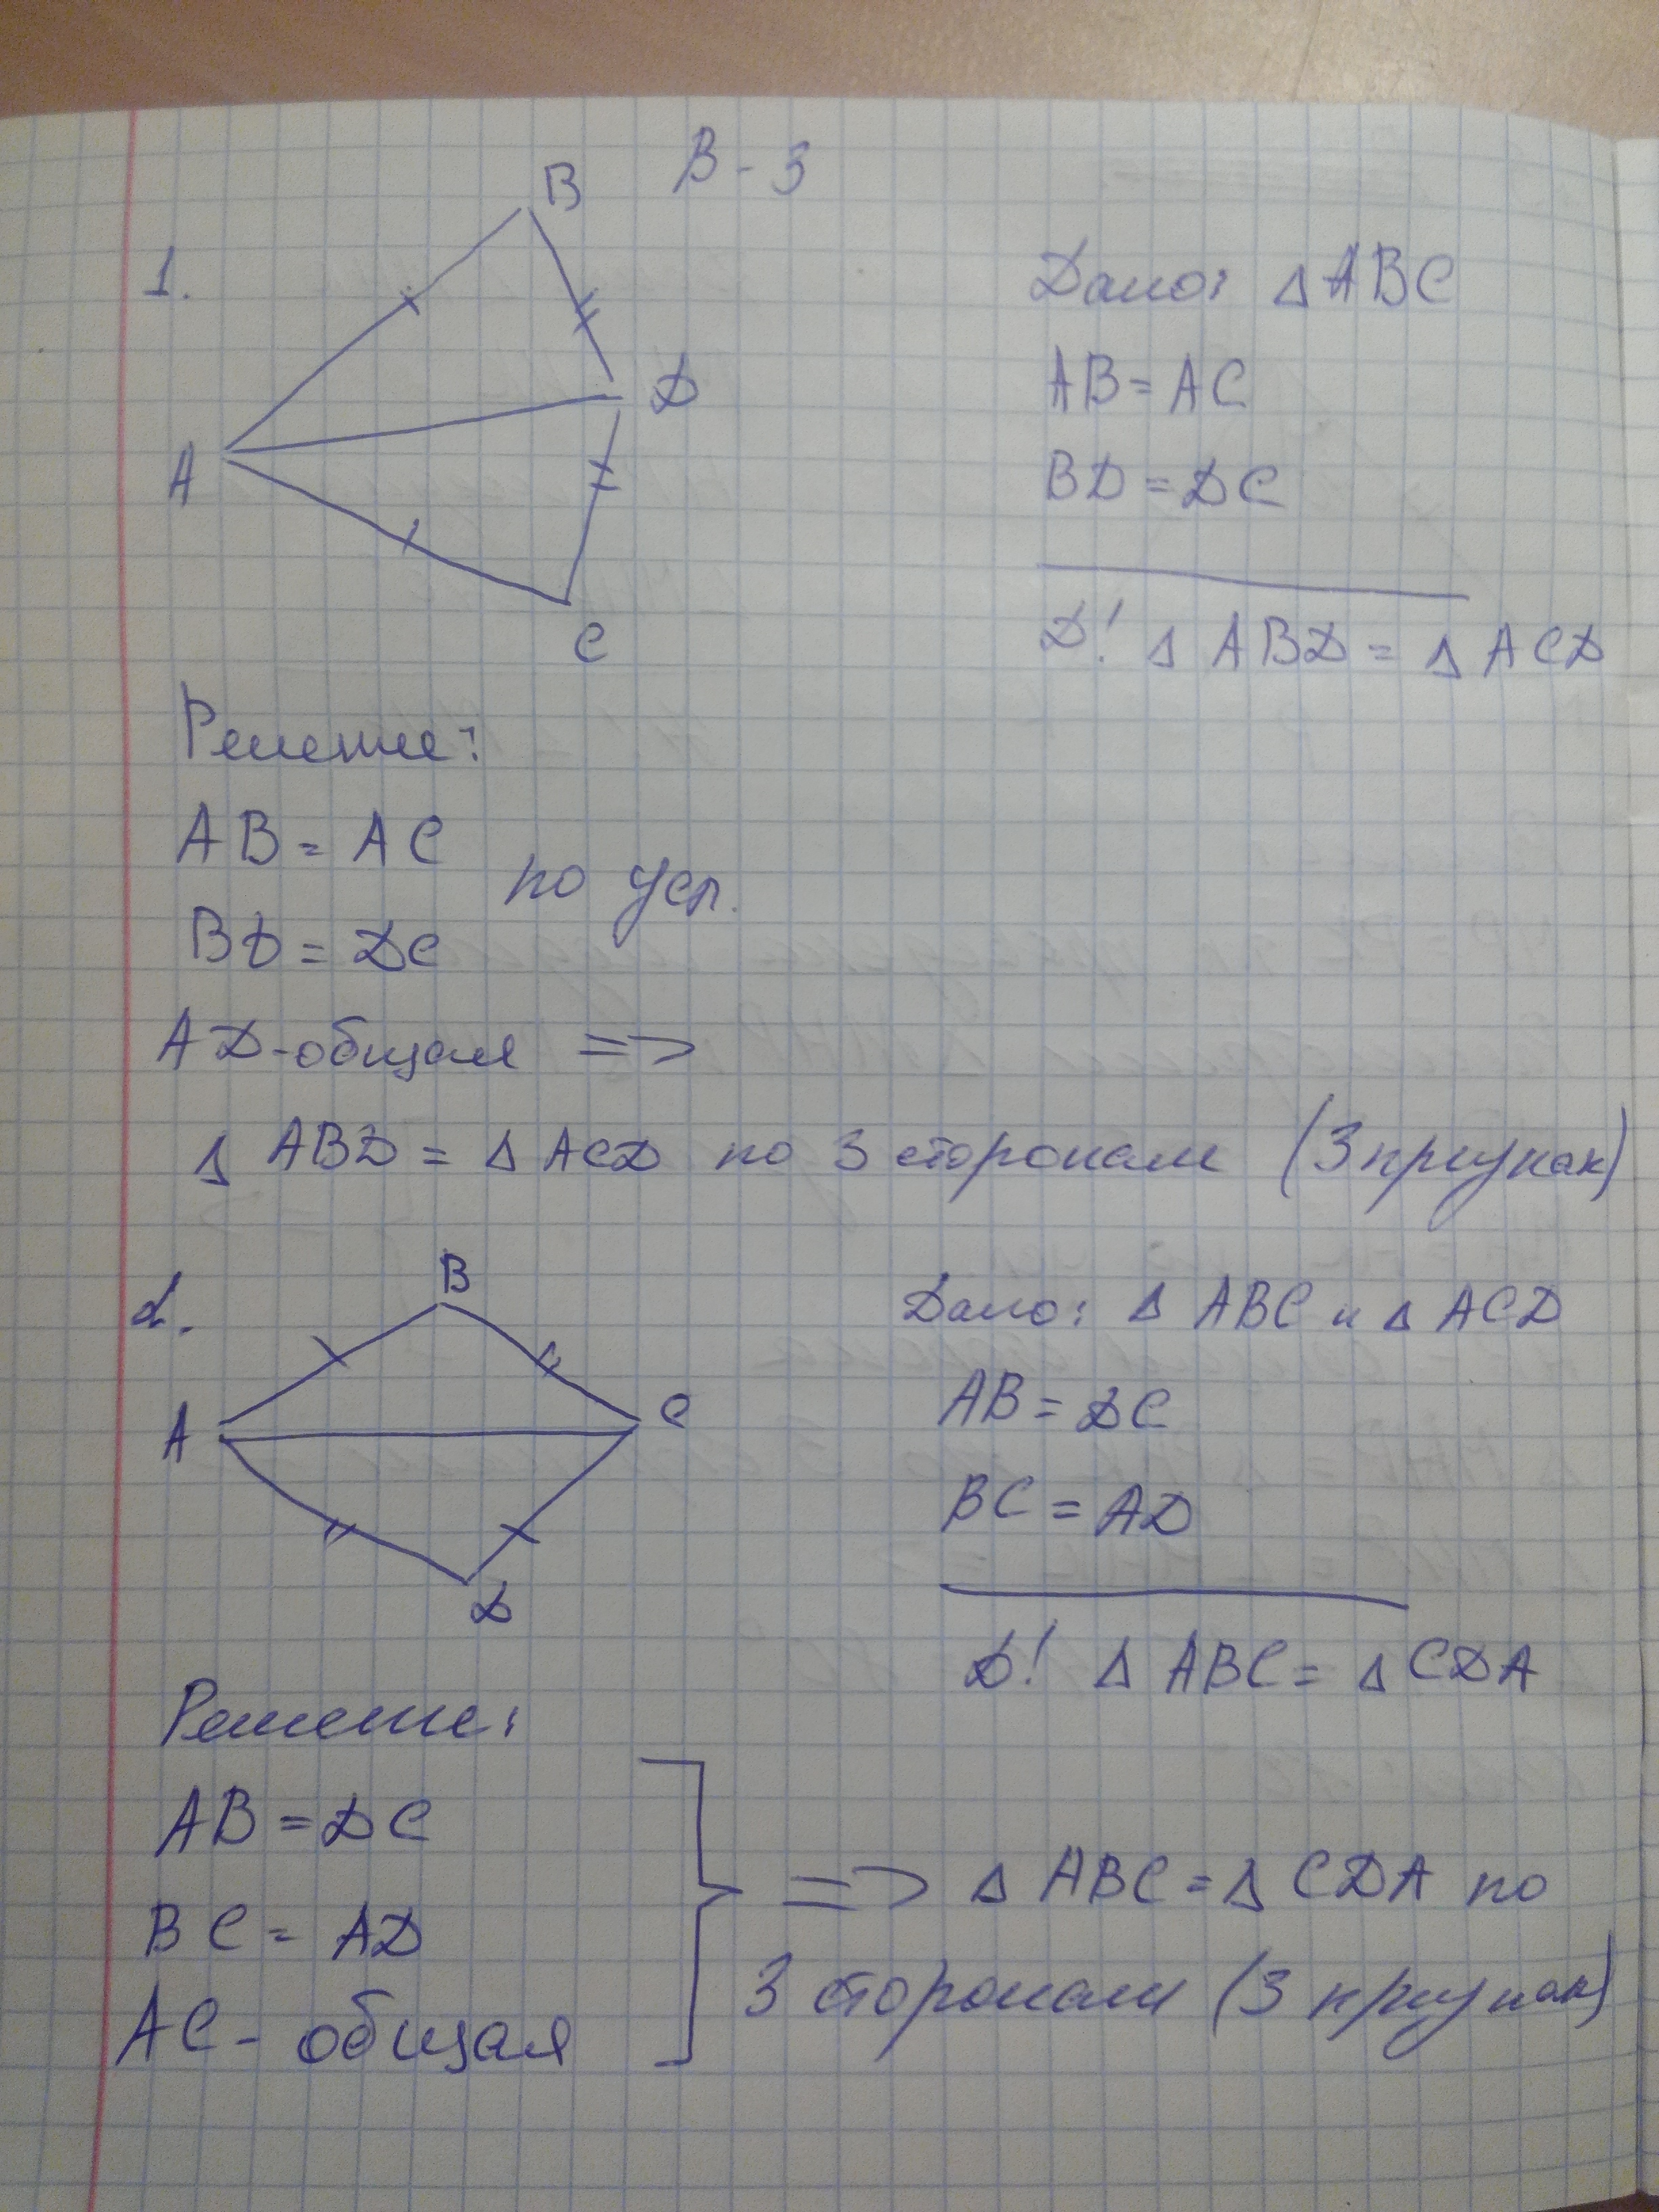 В - 3
B
1.
Дано: Δ ABC
AB = AC
D
BD = DC
A
C
D! Δ ABD = Δ ACD
Решение:
AB = AC
по усл.
BD = DC
AD - общая =>
Δ ABD = Δ ACD по 3 сторонам (3 признак)
B
2.
Дано: Δ ABC и Δ ACD
A
C
AB = DC
BC = AD
D
D! Δ ABC = Δ CDA
Решение:
AB = DC
BC = AD
AC - общая
=> Δ ABC = Δ CDA по
3 сторонам (3 признак)